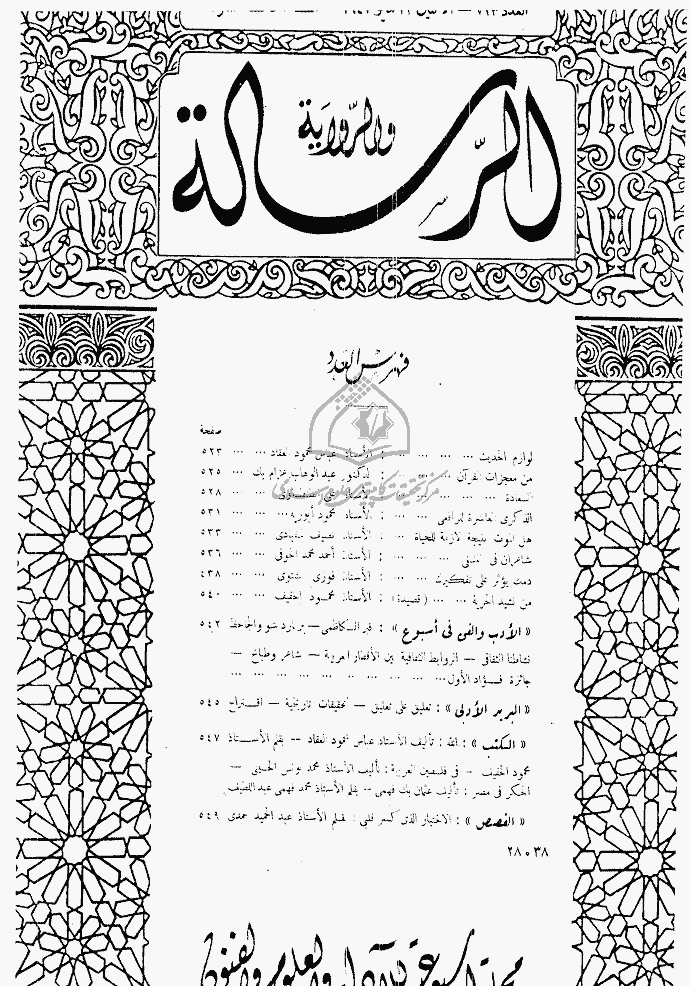 العدد ٧٢٣ —
الرسالة
والرواية
فهرس العدد
صفحة
لوازم الحديث ... ... ... ... : الأستاذ عباس محمود العقاد ... ... ٥٢٣
من معجزات القرآن ... ... : الدكتور عبد الوهاب عزام بك ... ٥٢٥
السعادة ... ... ... : الأستاذ ... ... ٥٢٨
الذكرى العاشرة للرافعى ... ... : الأستاذ محمود أبو رية ... ... ٥٣١
هل الموت نتيجة لازمة للحياة ... : الأستاذ نصيف منقبادى ... ... ٥٣٣
شاعران فى المنفى ... ... ... : الأستاذ أحمد محمد الحوفى ... ... ٥٣٦
دمك يؤثر على تفكيرك ... ... : الأستاذ فوزى شتوى ... ... ٤٣٨
من نشيد الحرية ... ... ( قصيدة ) : الأستاذ محمود الخفيف ... ... ٥٤٠
« الأدب والفن فى أسبوع » : قبر الكاظمى — برنارد شو والجاحظ ٥٤٢
نشاطنا الثقافى — الروابط الثقافية بين الأقطار العربية — شاعر وطباخ —
جائزة فؤاد الأول ... ... ... ... ... ... ... ...
« البريد الأدبى » : تعليق على تعليق — تحقيقات تاريخية — اقتراح ٥٤٥
« الكتب » : الله : تأليف الأستاذ عباس محمود العقاد — بقلم الأستاذ ٥٤٧
محمود الخفيف — فى فلسطين العربية : تأليف الأستاذ محمد يونس الحسينى —
الحكم فى مصر : تأليف عثمان بك فهمى — بقلم الأستاذ محمد فهمى عبد اللطيف
« القصص » : الاختيار الذى كسر قلبى : بقلم الأستاذ عبد الحميد حمدى ٥٤٩
٢٨٠٣٨
مجلة أسبوعية للآداب والعلوم والفنون